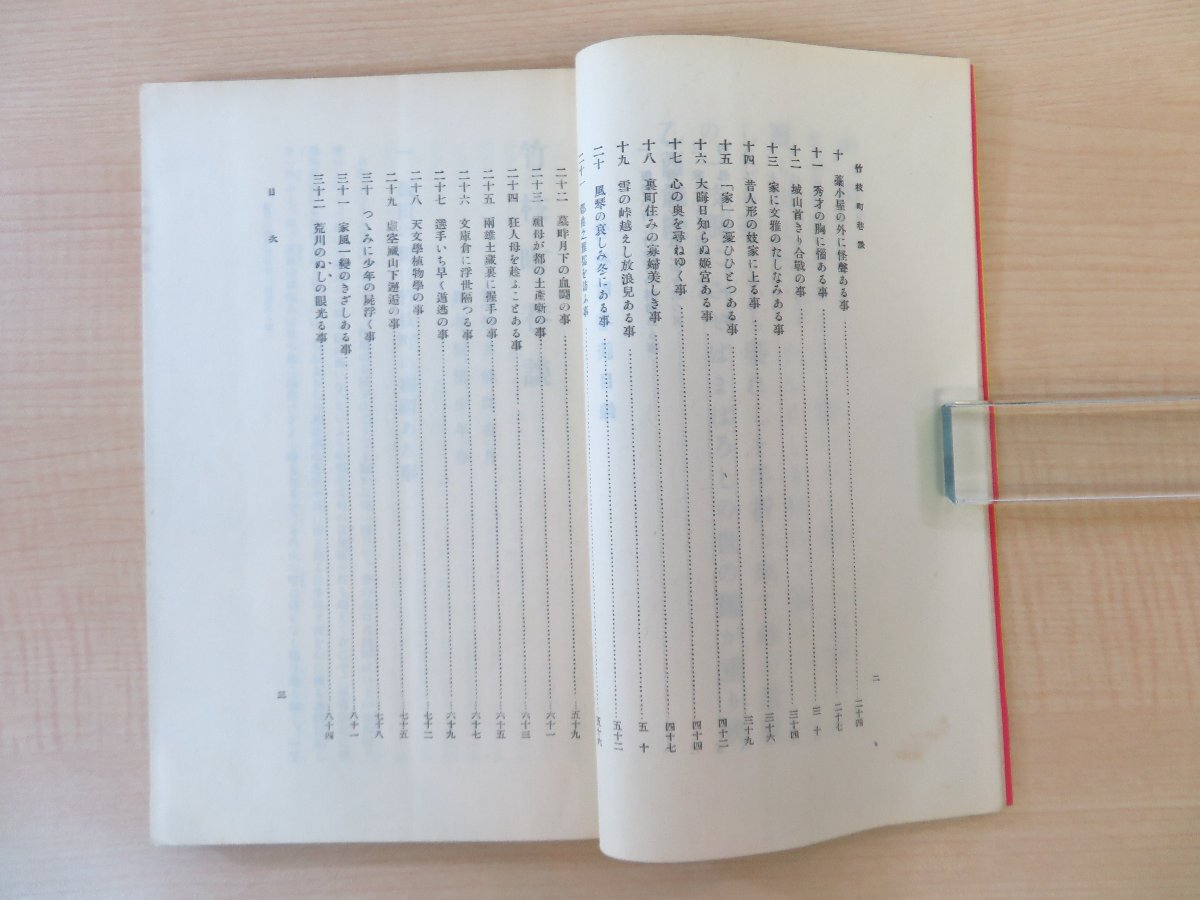 竹枝町巷談
十 藁小屋の外に怪聲ある事 二十四
十一 秀才の胸に惱ある事 二十七
十二 城山首きり合戰の事 三十
十三 家に文雅のたしなみある事 三十四
十四 昔人形の妓家に上る事 三十六
十五 「家」の憂ひひとつある事 三十九
十六 大晦日知らぬ姬宮ある事 四十二
十七 心の奧を尋ねゆく事 四十四
十八 裏町住みの寡婦美しき事 四十七
十九 雪の峠越えし放浪兒ある事 五十
二十 風琴の哀しみ冬にある事 五十二
二十一
二
二十二 墓畔月下の血鬪の事 五十九
二十三 祖母が都の土產噺の事 六十一
二十四 狂人母を趁ふことある事 六十三
二十五 兩雄土藏裏に握手の事 六十五
二十六 文庫倉に浮世隔つる事 六十七
二十七 選手いち早く遁逃の事 六十九
二十八 天文學植物學の事 七十二
二十九 虛空藏山下邂逅の事 七十五
三十 つゝみに少年の屍浮く事 七十八
三十一 家風一變のきざしある事 八十一
三十二 荒川のぬしの眼光る事 八十四
目次
三